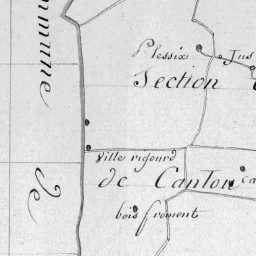 mmune
de
Plessix
Jus
Section
Ville rigourd
de Canton
ca
bois froment